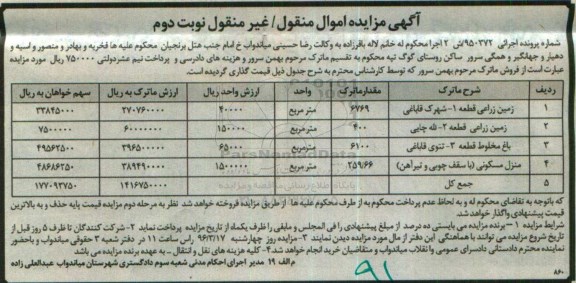 آگهی مزایده اموال منقول/ غیر منقول نوبت دوم
شماره پرونده اجرائی ۹۵۰۳۷۲/ش ۲ اجرا محکوم له خانم لاله باقرزاده به وکالت رضا حسینی میاندواب خ امام جنب هتل برنجیان محکوم علیه ها فخریه و بهادر و منصور و اسیه و
دهیار و جهانگیر و همگی سرور ساکن روستای گوگ تپه محکوم به تقسیم ماترک مرحوم بهمن سرور و هزینه های دادرسی و پرداخت نیم عشردولتی ۷۵۰۰۰۰ ریال مورد مزایده
عبارت است از فروش ماترک مرحوم بهمن سرور که توسط کارشناس محترم به شرح جدول ذیل قیمت گذاری گردیده است.
ردیف شرح ماترک مقدارماترک واحد ارزش واحد ریال ارزش ماترک به ریال سهم خواهان به ریال
۱ زمین زراعی قطعه ۱- شهرک قایاغی ۶۷۶۹ متر مربع ۴۰۰۰۰ ۲۷۰۷۶۰۰۰۰ ۳۳۸۴۵۰۰۰
۲ زمین زراعی قطعه ۲- تله چایی ۴۰۰ متر مربع ۱۵۰۰۰۰ ۶۰۰۰۰۰۰۰ ۷۵۰۰۰۰۰
۳ باغ مخلوط قطعه ۳- تتوی قایاغی ۶۱۰۰ متر مربع ۶۵۰۰۰ ۳۹۶۵۰۰۰۰۰ ۴۹۵۶۲۵۰۰
۴ منزل مسکونی (با سقف چوبی و تیرآهن) ۲۵۹/۶۶ متر مربع ۱۵۰۰۰۰۰ ۳۸۹۴۹۰۰۰۰ ۴۸۶۸۶۲۵۰
۵ جمع کل ۱۴۱۶۷۵۰۰۰۰ ۱۷۷۰۹۳۷۵۰
که باتوجه به تقاضای محکوم له و به لحاظ عدم پرداخت محکوم به از طرف محکوم علیه ها از طریق مزایده فروخته خواهد شد. نظر به مرحله دوم مزایده قیمت پایه حذف و به بالاترین
قیمت پیشنهادی واگذار خواهد شد.
شرایط مزایده ۱- برنده مزایده می بایستی ده درصد از مبلغ پیشنهادی را فی المجلس و مابقی را ظرف یکماه از تاریخ مزایده پرداخت نماید ۲- شرکت کنندگان تا ظرف ۵ روز قبل از
تاریخ شروع مزایده می توانند با هماهنگی این دفتر از مال مورد مزایده دیدن نمایند ۳- مزایده روز چهارشنبه ۹۶/۳/۱۷ راس ساعت ۱۱ در دفتر شعبه ۳ حقوقی میاندواب و باحضور
نماینده محترم دادستانی دادسرای عمومی وانقلاب میاندواب و متقاضیان خرید انجام خواهد شد ۴- کلیه هزینه های نقل و انتقال ـ به عهده برنده مزایده می باشد
م الف ۱۹ مدیر اجرای احکام مدنی شعبه سوم دادگستری شهرستان میاندواب عبدالعلی زاده
۸۶۰
۹۱